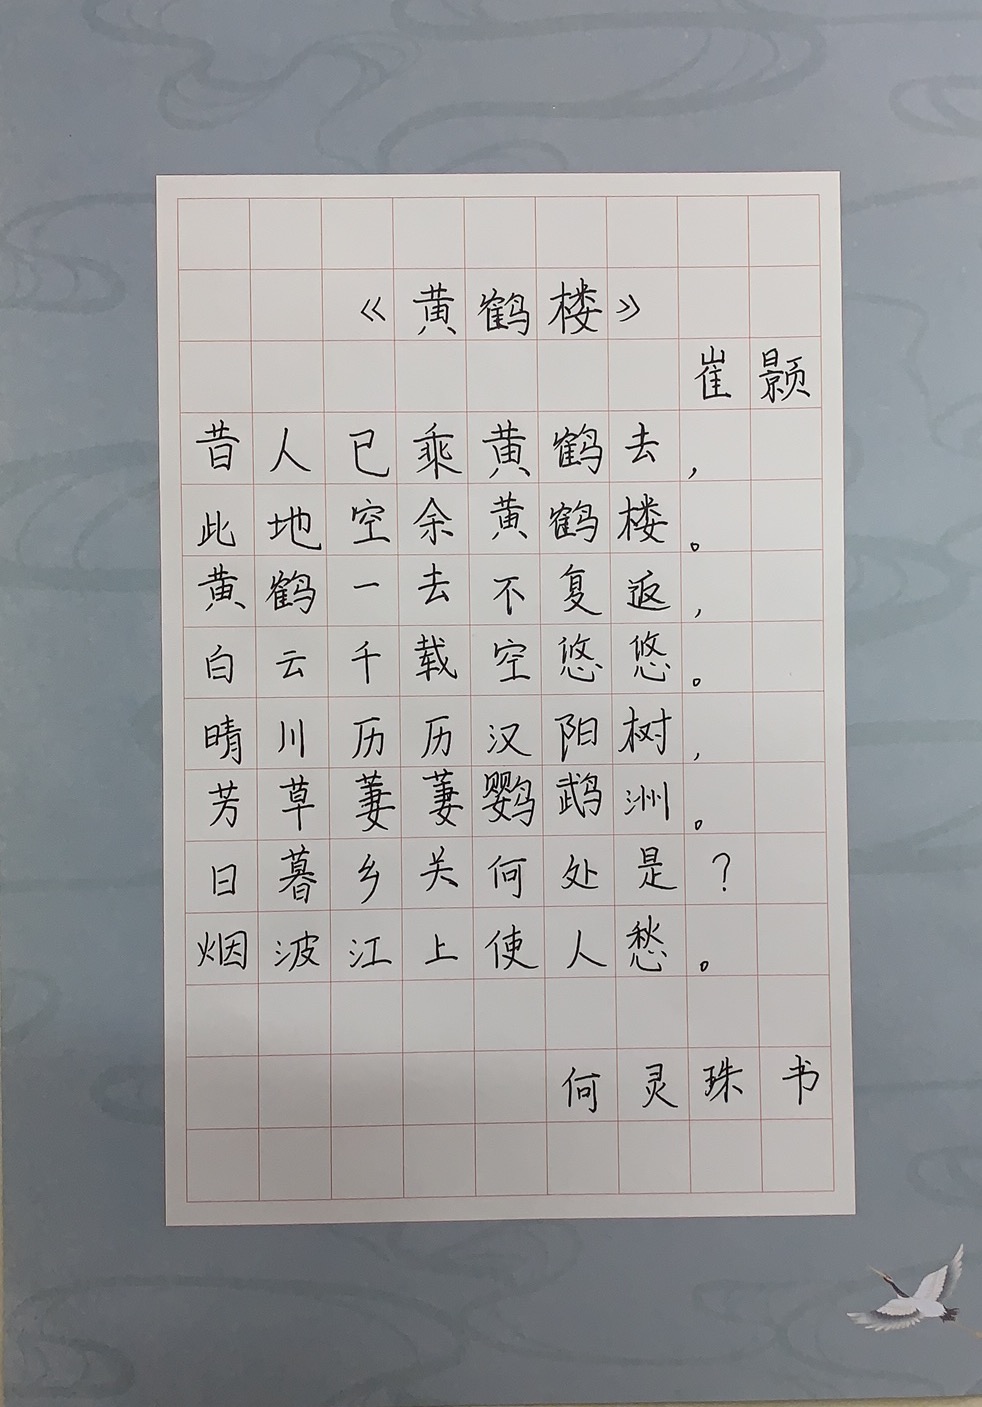 《黄鹤楼》
崔颢
昔人已乘黄鹤去，
此地空余黄鹤楼。
黄鹤一去不复返，
白云千载空悠悠。
晴川历历汉阳树，
芳草萋萋鹦鹉洲。
日暮乡关何处是？
烟波江上使人愁。
何灵珠书